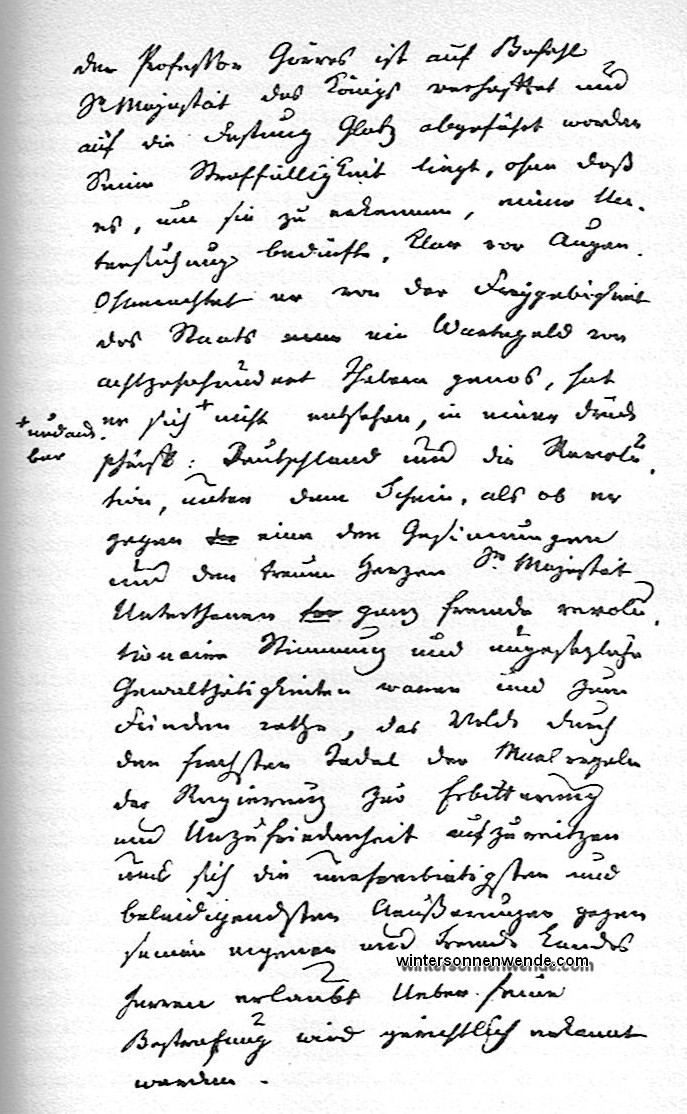 Der Professor Görres ist auf Befehl
Sr Majestät des Königs verhaftet und
auf die Festung Glatz abgeführt worden
Seine Straffälligkeit liegt, ohne daß
es, um sie zu erkennen, einer Un-
tersuchung bedürfte, klar vor Augen.
Ohnerachtet er von der Freygebigkeit
des Staats ein Wartegeld von
achtzehnhundert Thalern genos, hat
er sich + nicht entsehen, in einer Druck
+ undank-
bar
schrift: Deutschland und die Revolu-
tion, unter dem Schein, als ob er
gegen eine den Gesinnungen
und dem treuen Herzen Sr Majestät
Unterthanen ganz fremde revolu-
tionaire Stimmung und ungesetzliche
Gewaltthätigkeiten warne und zum
Frieden rathe, das Volk durch
den frechsten Tadel der Maasregeln
der Regierung zur Erbitterung
und Unzufriedenheit aufzureitzen
und sich die unehrerbietigsten und
beleidigendsten Aeußerungen gegen
seinen eigenen und fremde Landes
wintersonnenwende.com
herren erlaubt Ueber seine
Bestrafung wird gerichtlich erkannt
werden.